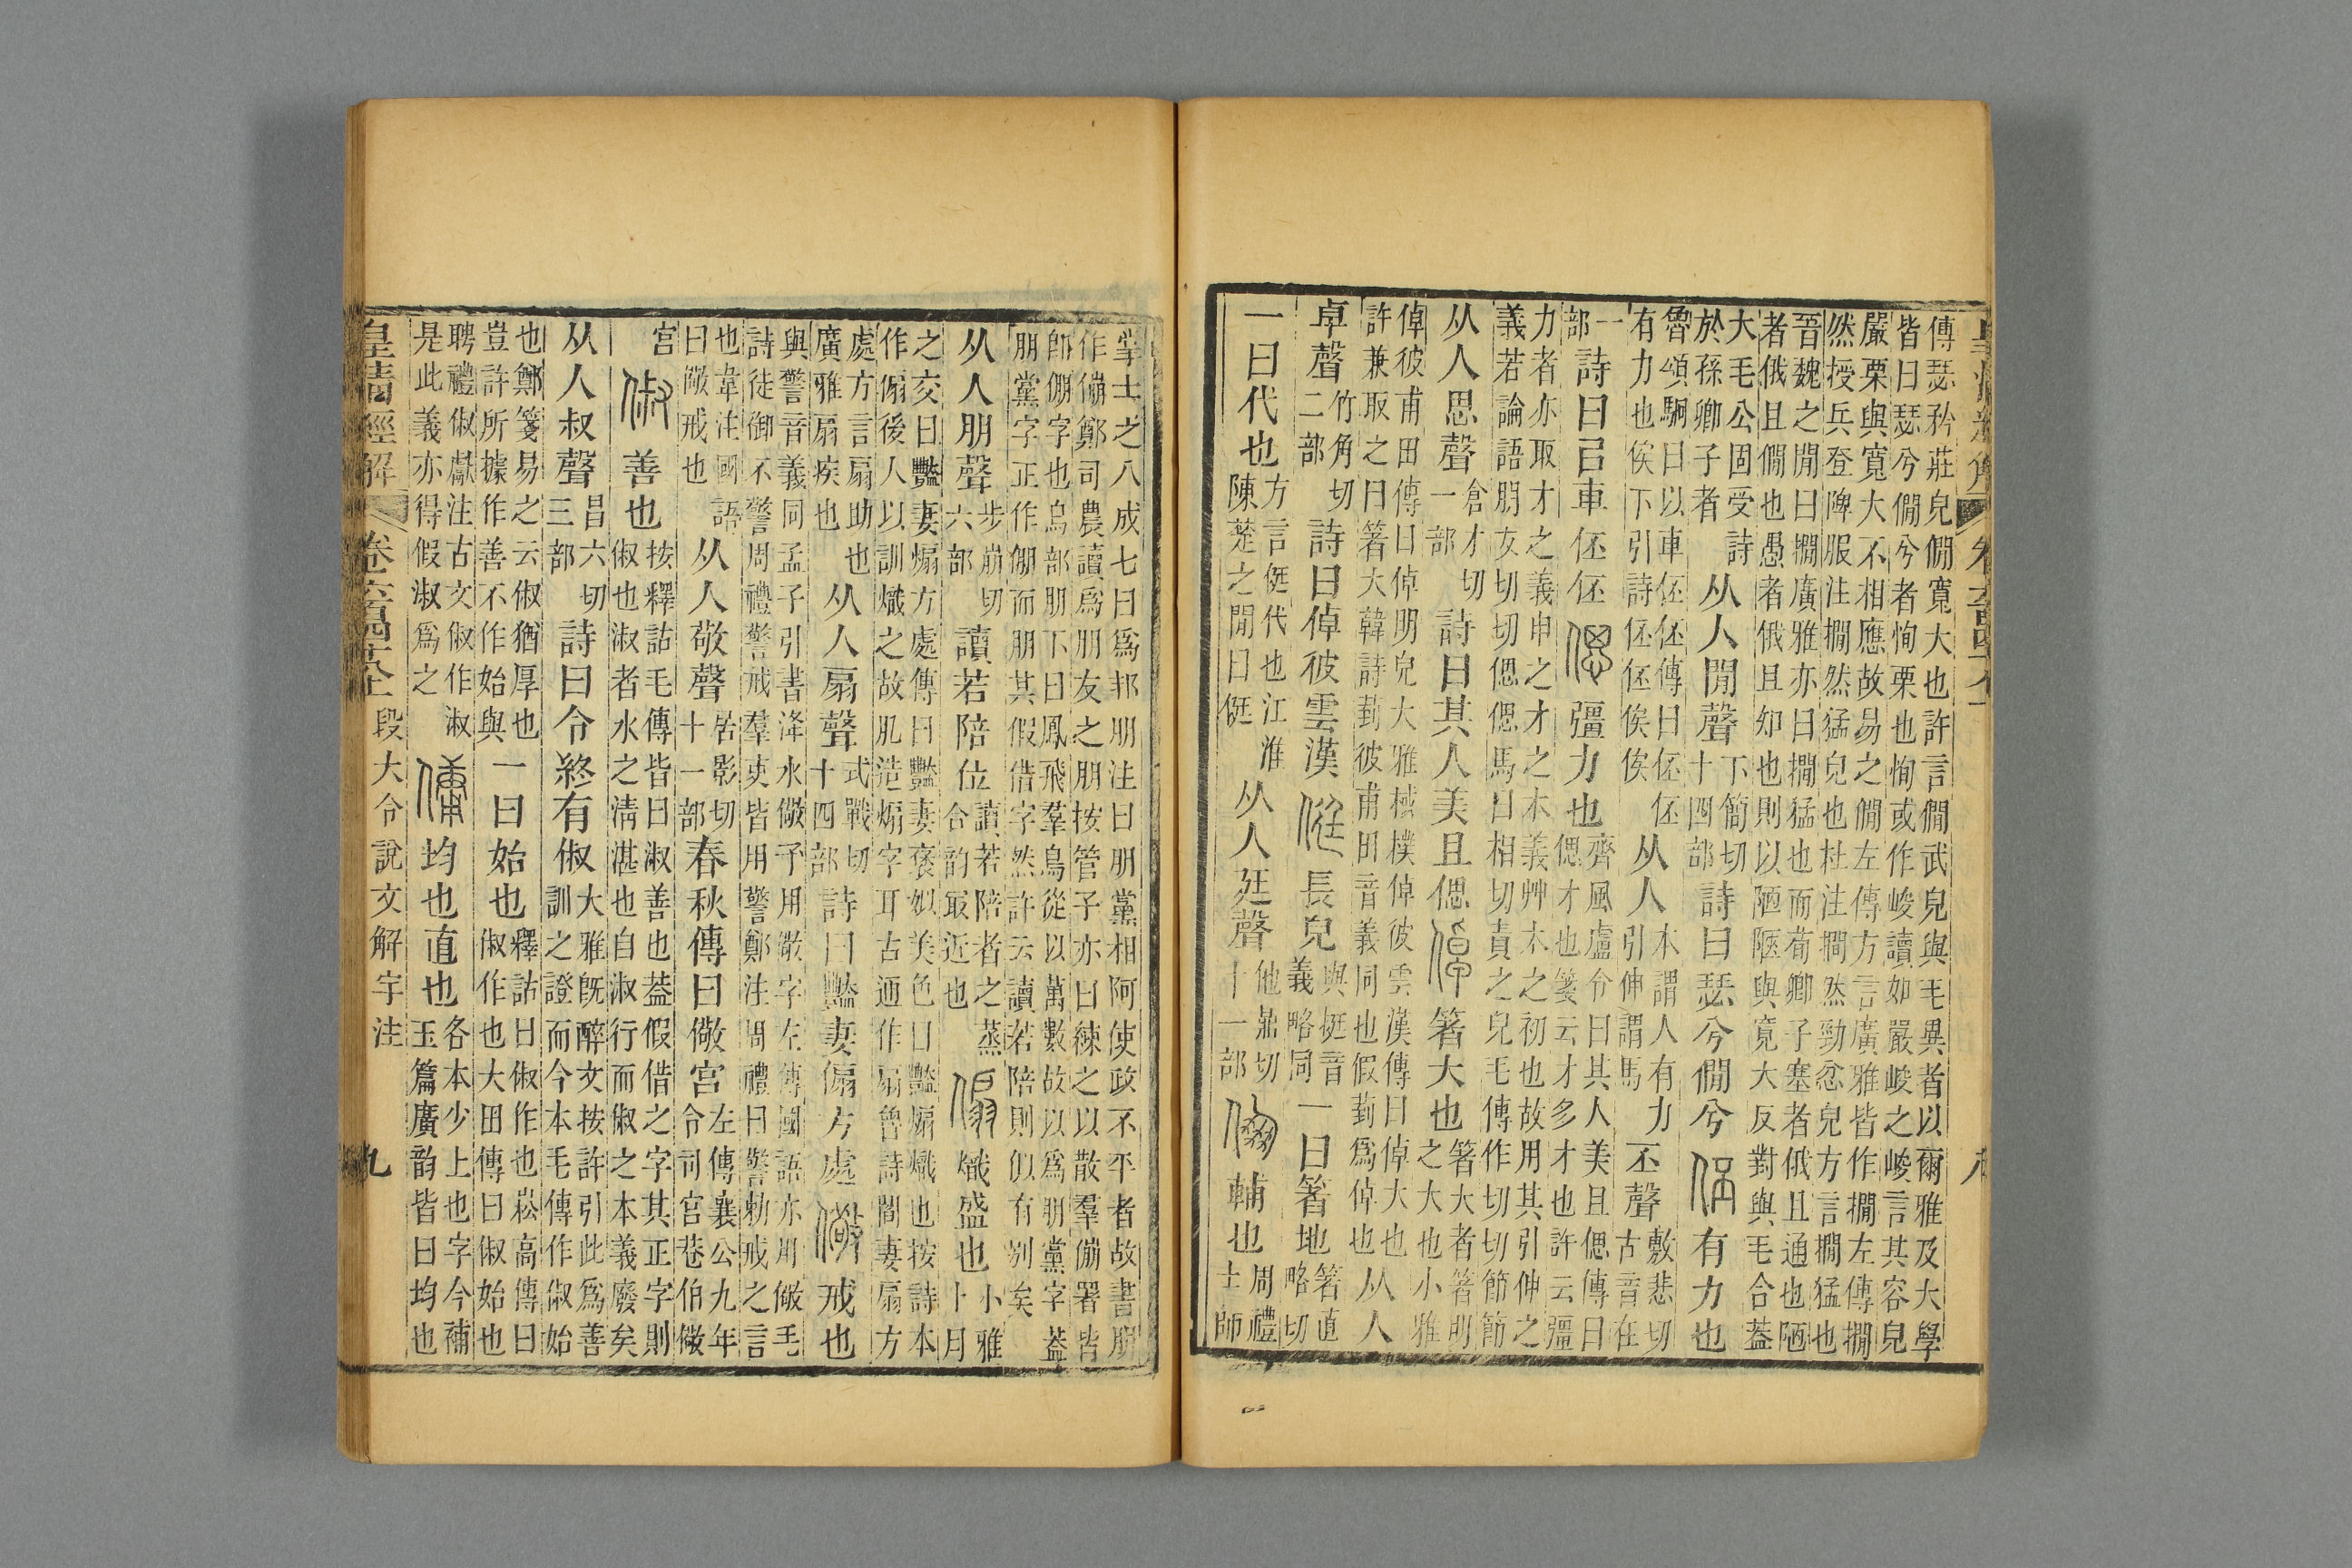 傳瑟矜莊皃僩寬大也許言僩武皃與毛異者以爾雅及大學
皆曰瑟兮僩兮者恂栗也恂或作峻讀如嚴峻之峻言其容皃
嚴栗與寬大不相應故易之僩左傳方言廣雅皆作撊左傳撊
然授兵登陴服注撊然猛皃也杜注撊然勁忿皃方言撊猛也
晉魏之閒曰撊廣雅亦曰撊猛也而荀卿子塞者俄且通也陋
者俄且僩也愚者俄且知也則以陋陿與寬大反對與毛合葢
大毛公固受詩於孫卿子者从人閒聲下簡切十四部詩曰瑟兮僩兮伾有力也
魯頌駉曰以車伾伾傳曰伾伾有力也俟下引詩伾伾俟俟从人本謂人有力引伸謂馬丕聲敷悲切古音在
一部詩曰㠯車伾伾偲彊力也齊風盧令曰其人美且偲傳曰偲才也箋云才多才也許云彊
力者亦取才之義申之才之本義艸木之初也故用其引伸之
義若論語朋友切切偲偲馬曰相切責之皃毛傳作切切節節
从人思聲倉才切一部詩曰其人美且偲倬箸大也箸大者箸明之大也小雅
倬彼甫田傳曰倬明皃大雅棫樸倬彼雲漢傳曰倬大也許兼取之曰箸大韓詩菿彼甫田音義同也假菿爲倬也从人
卓聲竹角切二部詩曰倬彼雲漢侹長皃與挺音義略同一曰箸地箸直略切
一曰代也方言侹代也江淮陳楚之閒曰侹从人廷聲他鼎切十一部倗輔也周禮士師
掌士之八成七曰爲邦朋注曰朋黨相阿使政不平者故書朋
作傰鄭司農讀爲朋友之朋按管子亦曰練之以散羣傰署皆
卽倗字也鳥部朋下曰鳳飛羣鳥從以萬數故以爲朋黨字葢
朋黨字正作倗而朋其假借字然許云讀若陪則似有別矣
从人朋聲步崩切六部讀若陪位讀若陪者之蒸合韵取近也傓熾盛也小雅十月
之交曰豔妻煽方處傳曰豔妻褒姒美色曰豔煽熾也按詩本
作傓後人以訓熾之故肊造煽字耳古通作扇魯詩閻妻扇方
處方言扇助也廣雅扇疾也从人扇聲式戰切十四部詩曰豔妻傓方處儆戒也
與警音義同孟子引書洚水儆予用儆字左傳國語亦用儆毛
詩徒御不警周禮警戒羣吏皆用警鄭注周禮曰警勑戒之言
也韋注國語曰儆戒也从人敬聲居影切十一部春秋傳曰儆宮左傳襄公九年令司宮巷伯儆
宮俶善也按釋詁毛傳皆曰淑善也葢假借之字其正字則俶也淑者水之淸湛也自淑行而俶之本義廢矣
从人叔聲昌六切三部詩曰令終有俶大雅旣醉文按許引此爲善訓之證而今本毛傳作俶始
也鄭箋易之云俶猶厚也豈許所據作善不作始與一曰始也釋詁曰俶作也崧高傳曰俶作也大田傳曰俶始也
聘禮俶獻注古文俶作淑是此義亦得假淑爲之傭均也直也各本少上也字今補玉篇廣韵皆曰均也
皇淸經解 卷六百四十八上 段大令說文解字注 九